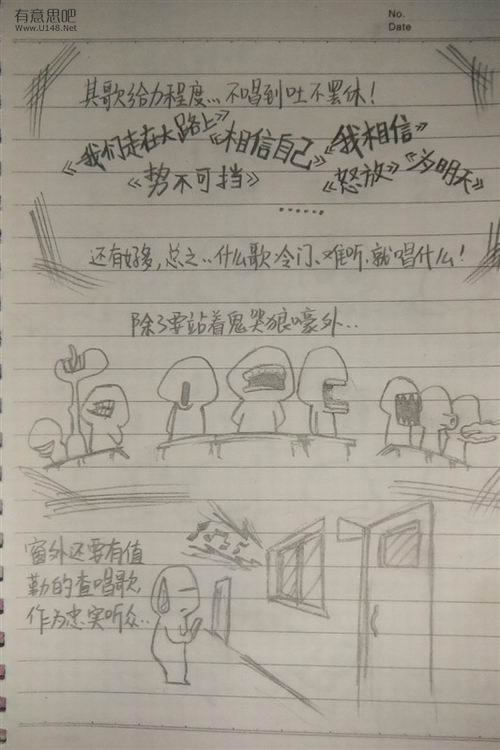 有意思吧
Www.U148.Net
No.
Date
其歌给力程度... 不唱到吐不罢休！
《我们走在大路上》《相信自己》《我相信》
《势不可挡》《怒放》《为明天》
......
还有好多，总之.. 什么歌冷门、难听.就唱什么！
除了要站着鬼哭狼嚎外..
窗外还要有值
勤的查唱歌,
作为忠实听众..